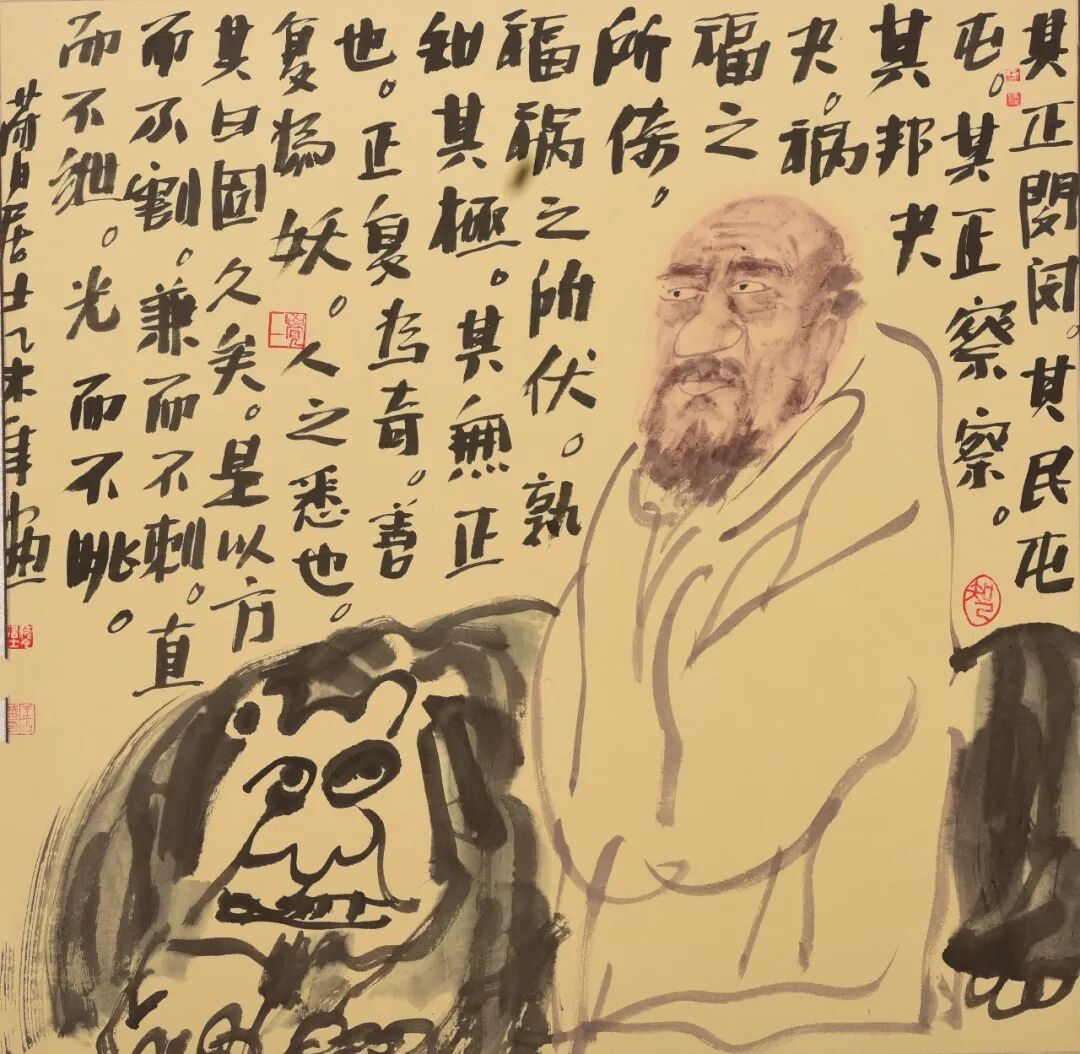 其正閔闵。其民屯
屯。其正察察。
其邦夬
夬。祸
福之
所倚。
福祸之所伏。孰
知其極。其無正
也。正复为奇。善
复為妖。人之悉也。
其日固久矣。是以方
而不割。兼而不刺。直
而不紲。光而不眺。
居士乙未年画